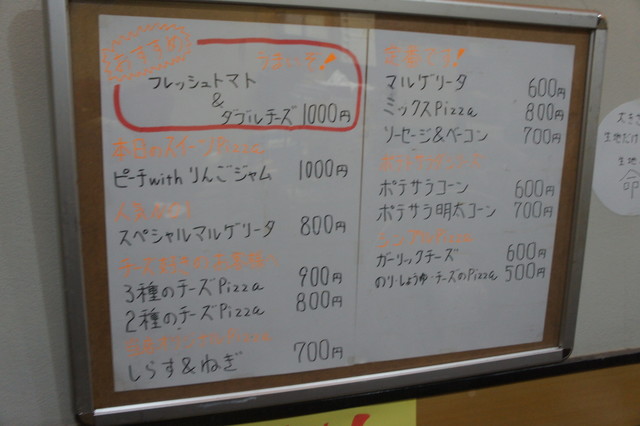 おすすめ
うまいぞ!
フレッシュトマト
&
ダブルチーズ 1000円
本日のスイーツPizza
ピーチwithりんごジャム 1000円
人気
スペシャルマルゲリータ 800円
チーズ好きのお客様へ
3種のチーズPizza 900円
2種のチーズPizza 800円
しらす&ねぎ 700円
定番です!
マルゲリータ 600円
ミックスPizza 800円
ソーセージ&ベーコン 700円
ポテサラコーン 600円
ポテサラ明太コーン 700円
シンプルPizza
ガーリックチーズ 600円
のり・しょうゆ・チーズのPizza 500円
大きさ
生地だけ
生地
命